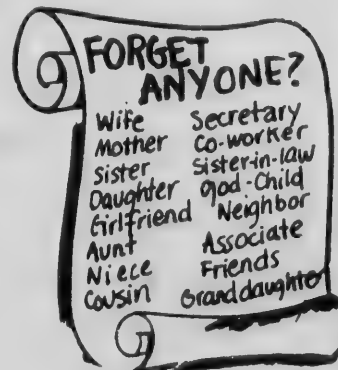 FORGET
ANYONE?
Wife
Mother
Sister
Daughter
Girlfriend
Aunt
Niece
Cousin
Secretary
Co-worker
Sister-in-law
god-Child
Neighbor
Associate
Friends
Granddaughter